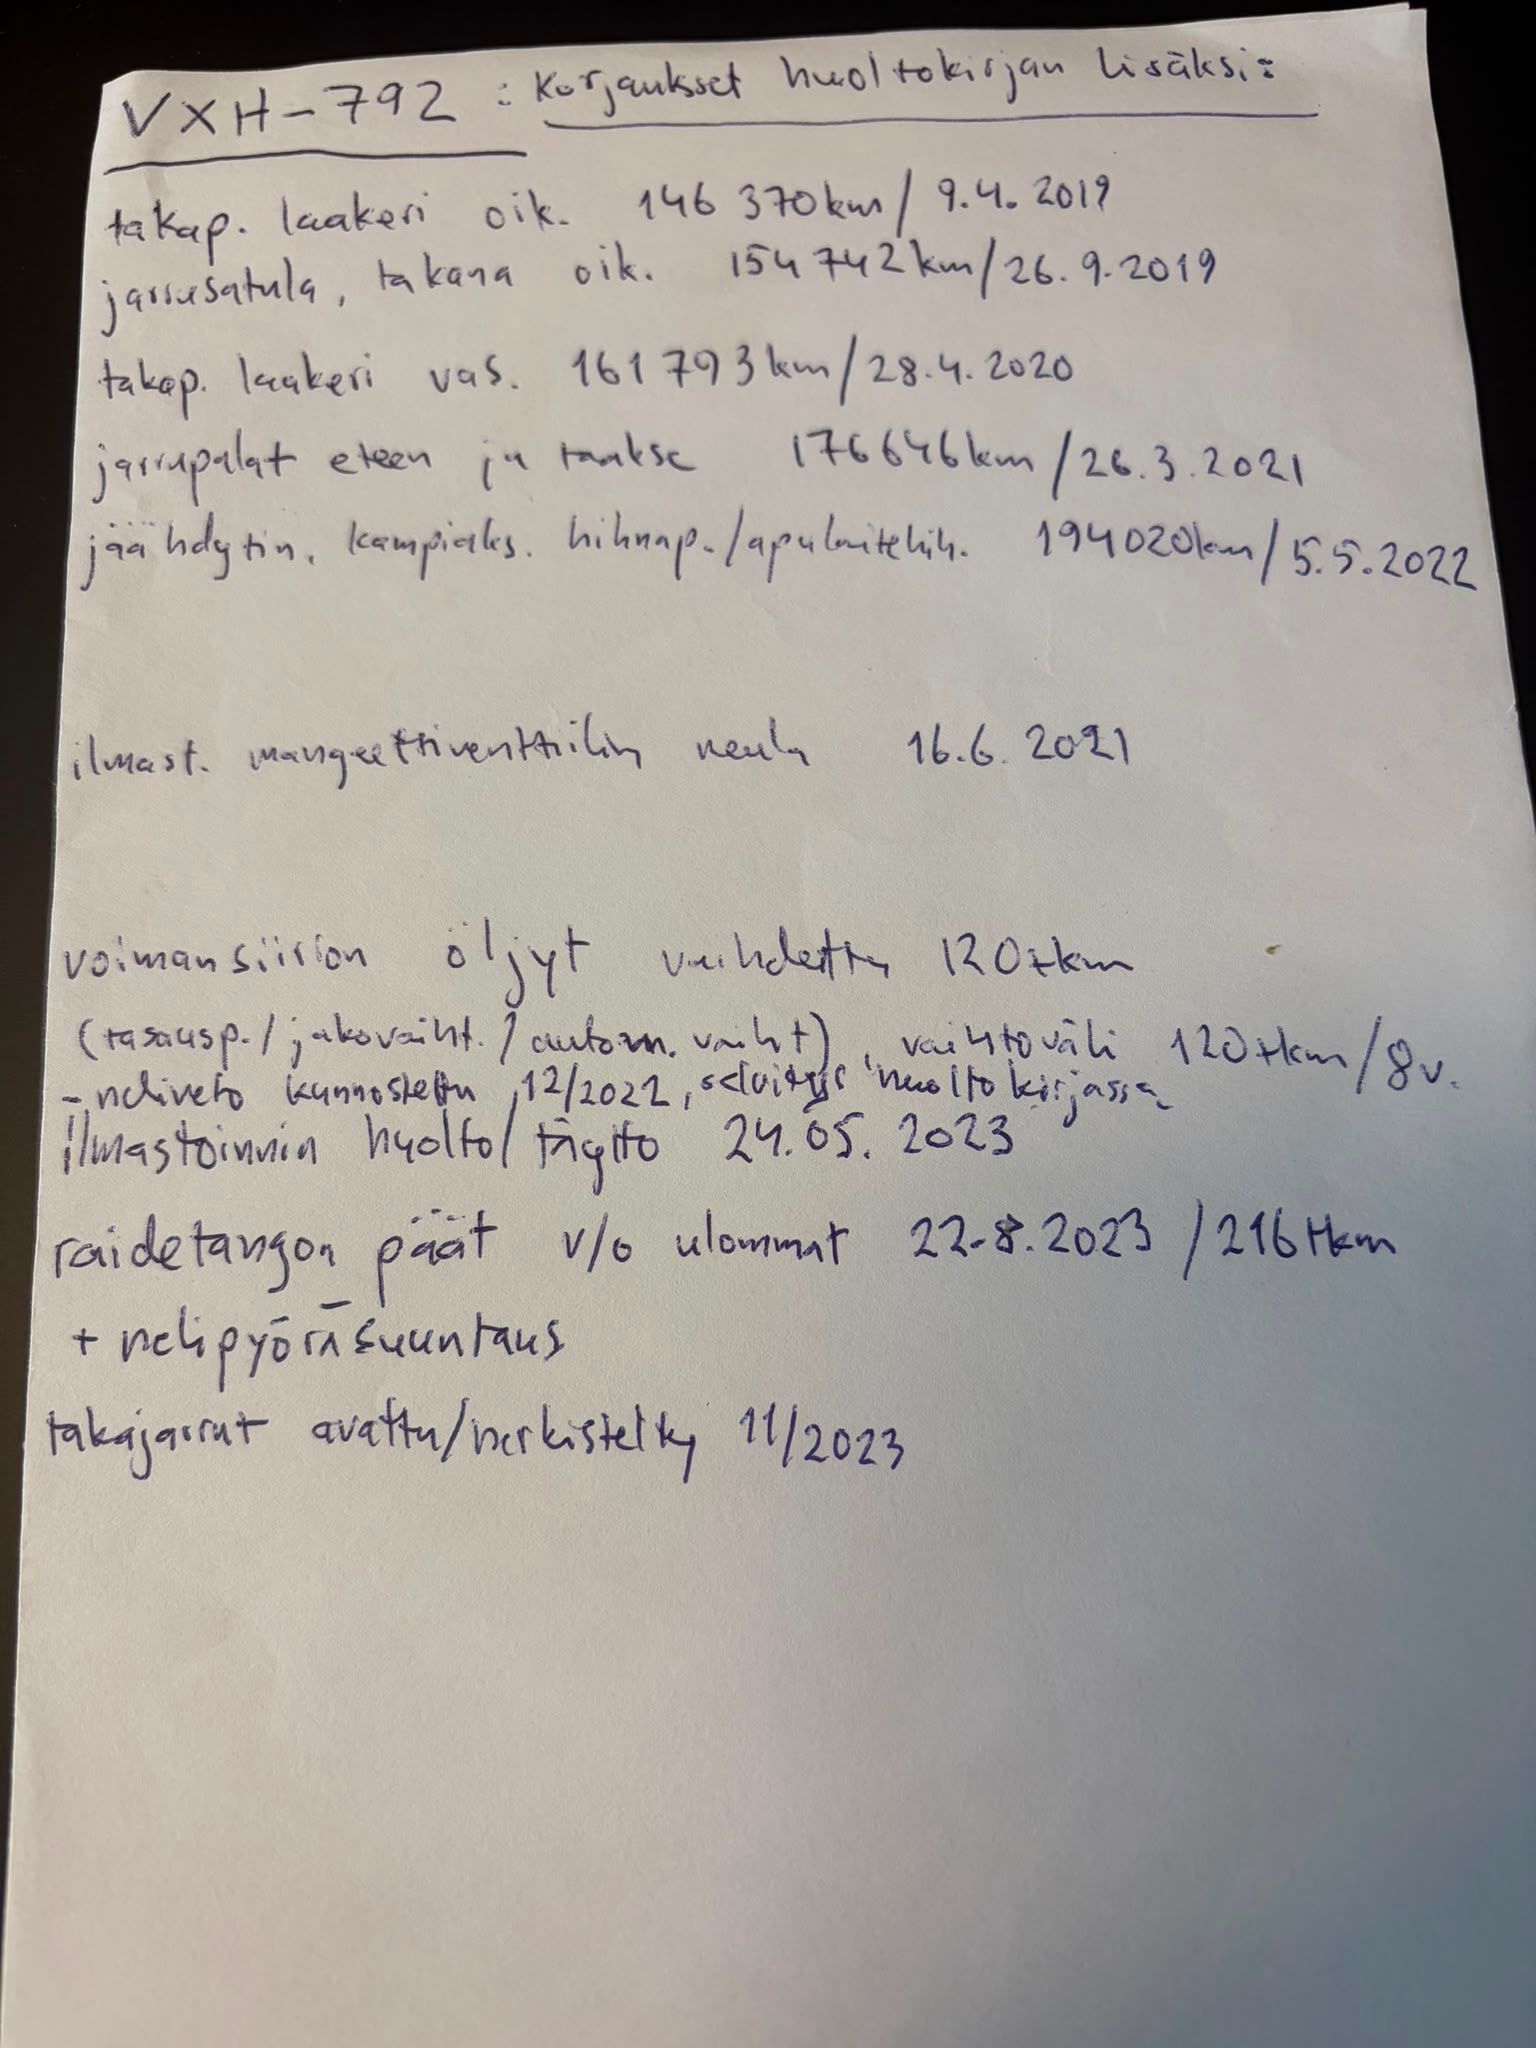 VXH-792 : Korjaukset huoltokirjan lisäksi:
takap. laakeri oik. 146 370km / 9.4.2019
jarrusatula, takana oik. 154 742km/26.9.2019
takap. laakeri vas. 161 793km/28.4.2020
jarrupalat eteen ja taakse 176646km/26.3.2021
jäähdytin, kampiaks. hihnap./apulaitehih. 194020km/5.5.2022
ilmast. mangeettiventtiilin neula 16.6.2021
voimansiirion öljyt vaihdettu 120tkm
(tasausp./jakovaiht./autom. vaiht), vaihtoväli 120tkm/8v.
- neliveto kunnostettu 12/2022, selvitys huoltokirjassa
ilmastoinnin huolto/täyttö 24.05.2023
raidetangon päät v/o ulommat 22.8.2023 /216tkm
+ nelipyöräsuuntaus
takajarrut avattu/herkistelty 11/2023